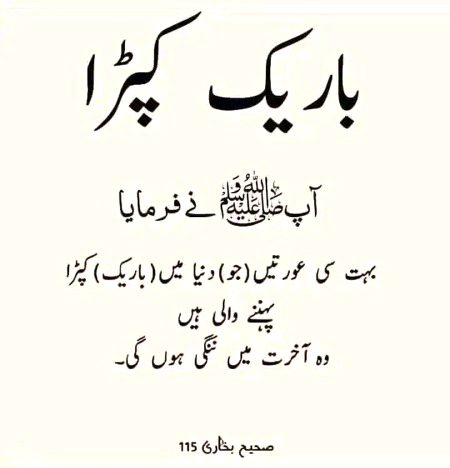 باریک کپڑا
آپ ﷺ نے فرمایا
بہت سی عورتیں (جو) دنیا میں (باریک) کپڑا
پہننے والی ہیں
وہ آخرت میں ننگی ہوں گی۔
صحیح بخاری 115